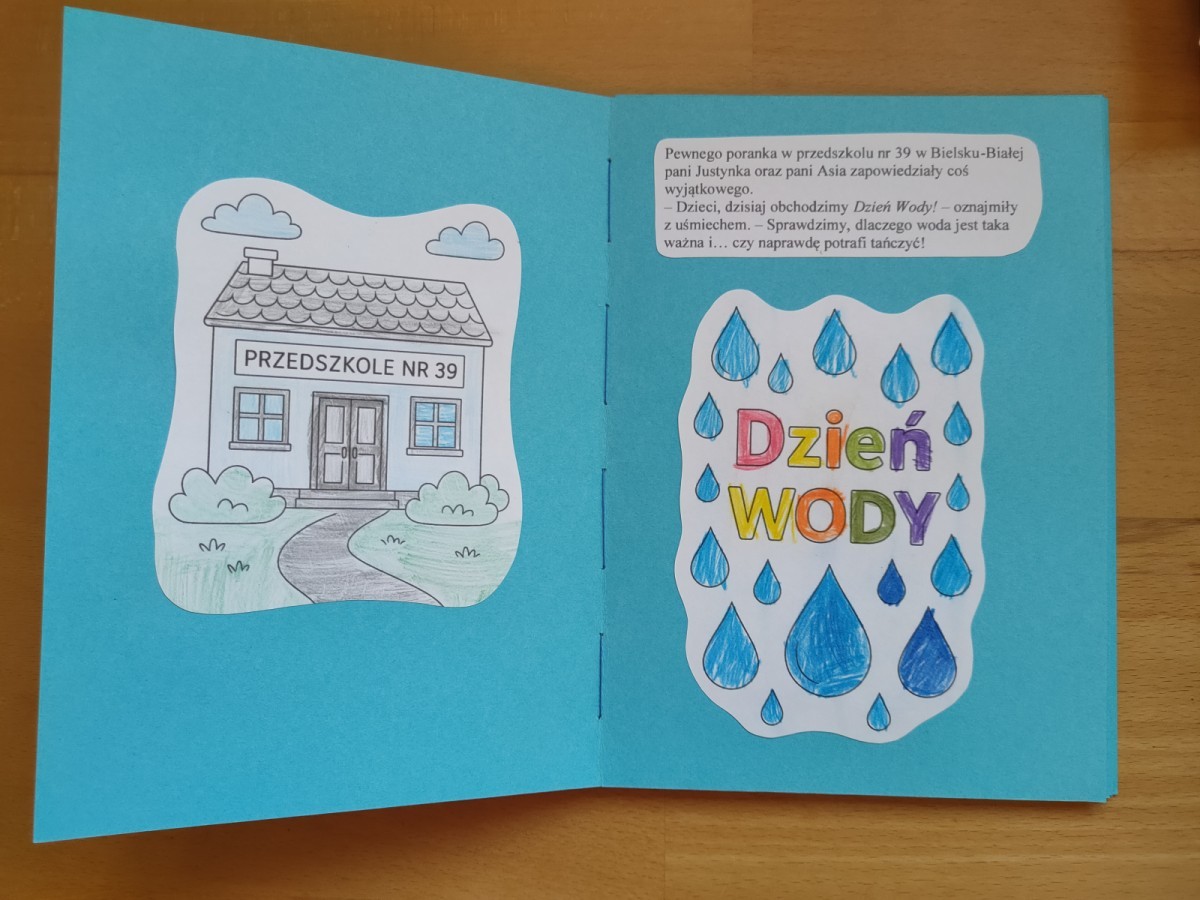 PRZEDSZKOLE NR 39
Pewnego poranka w przedszkolu nr 39 w Bielsku-Białej
pani Justynka oraz pani Asia zapowiedziały coś
wyjątkowego.
– Dzieci, dzisiaj obchodzimy Dzień Wody! – oznajmiły
z uśmiechem. – Sprawdzimy, dlaczego woda jest taka
ważna i… czy naprawdę potrafi tańczyć!
Dzień
WODY